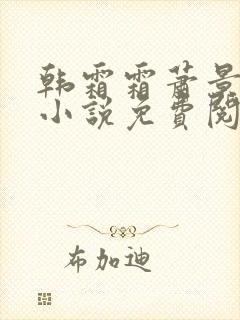 韩霜霜萧景
小说免费阅
布加迪